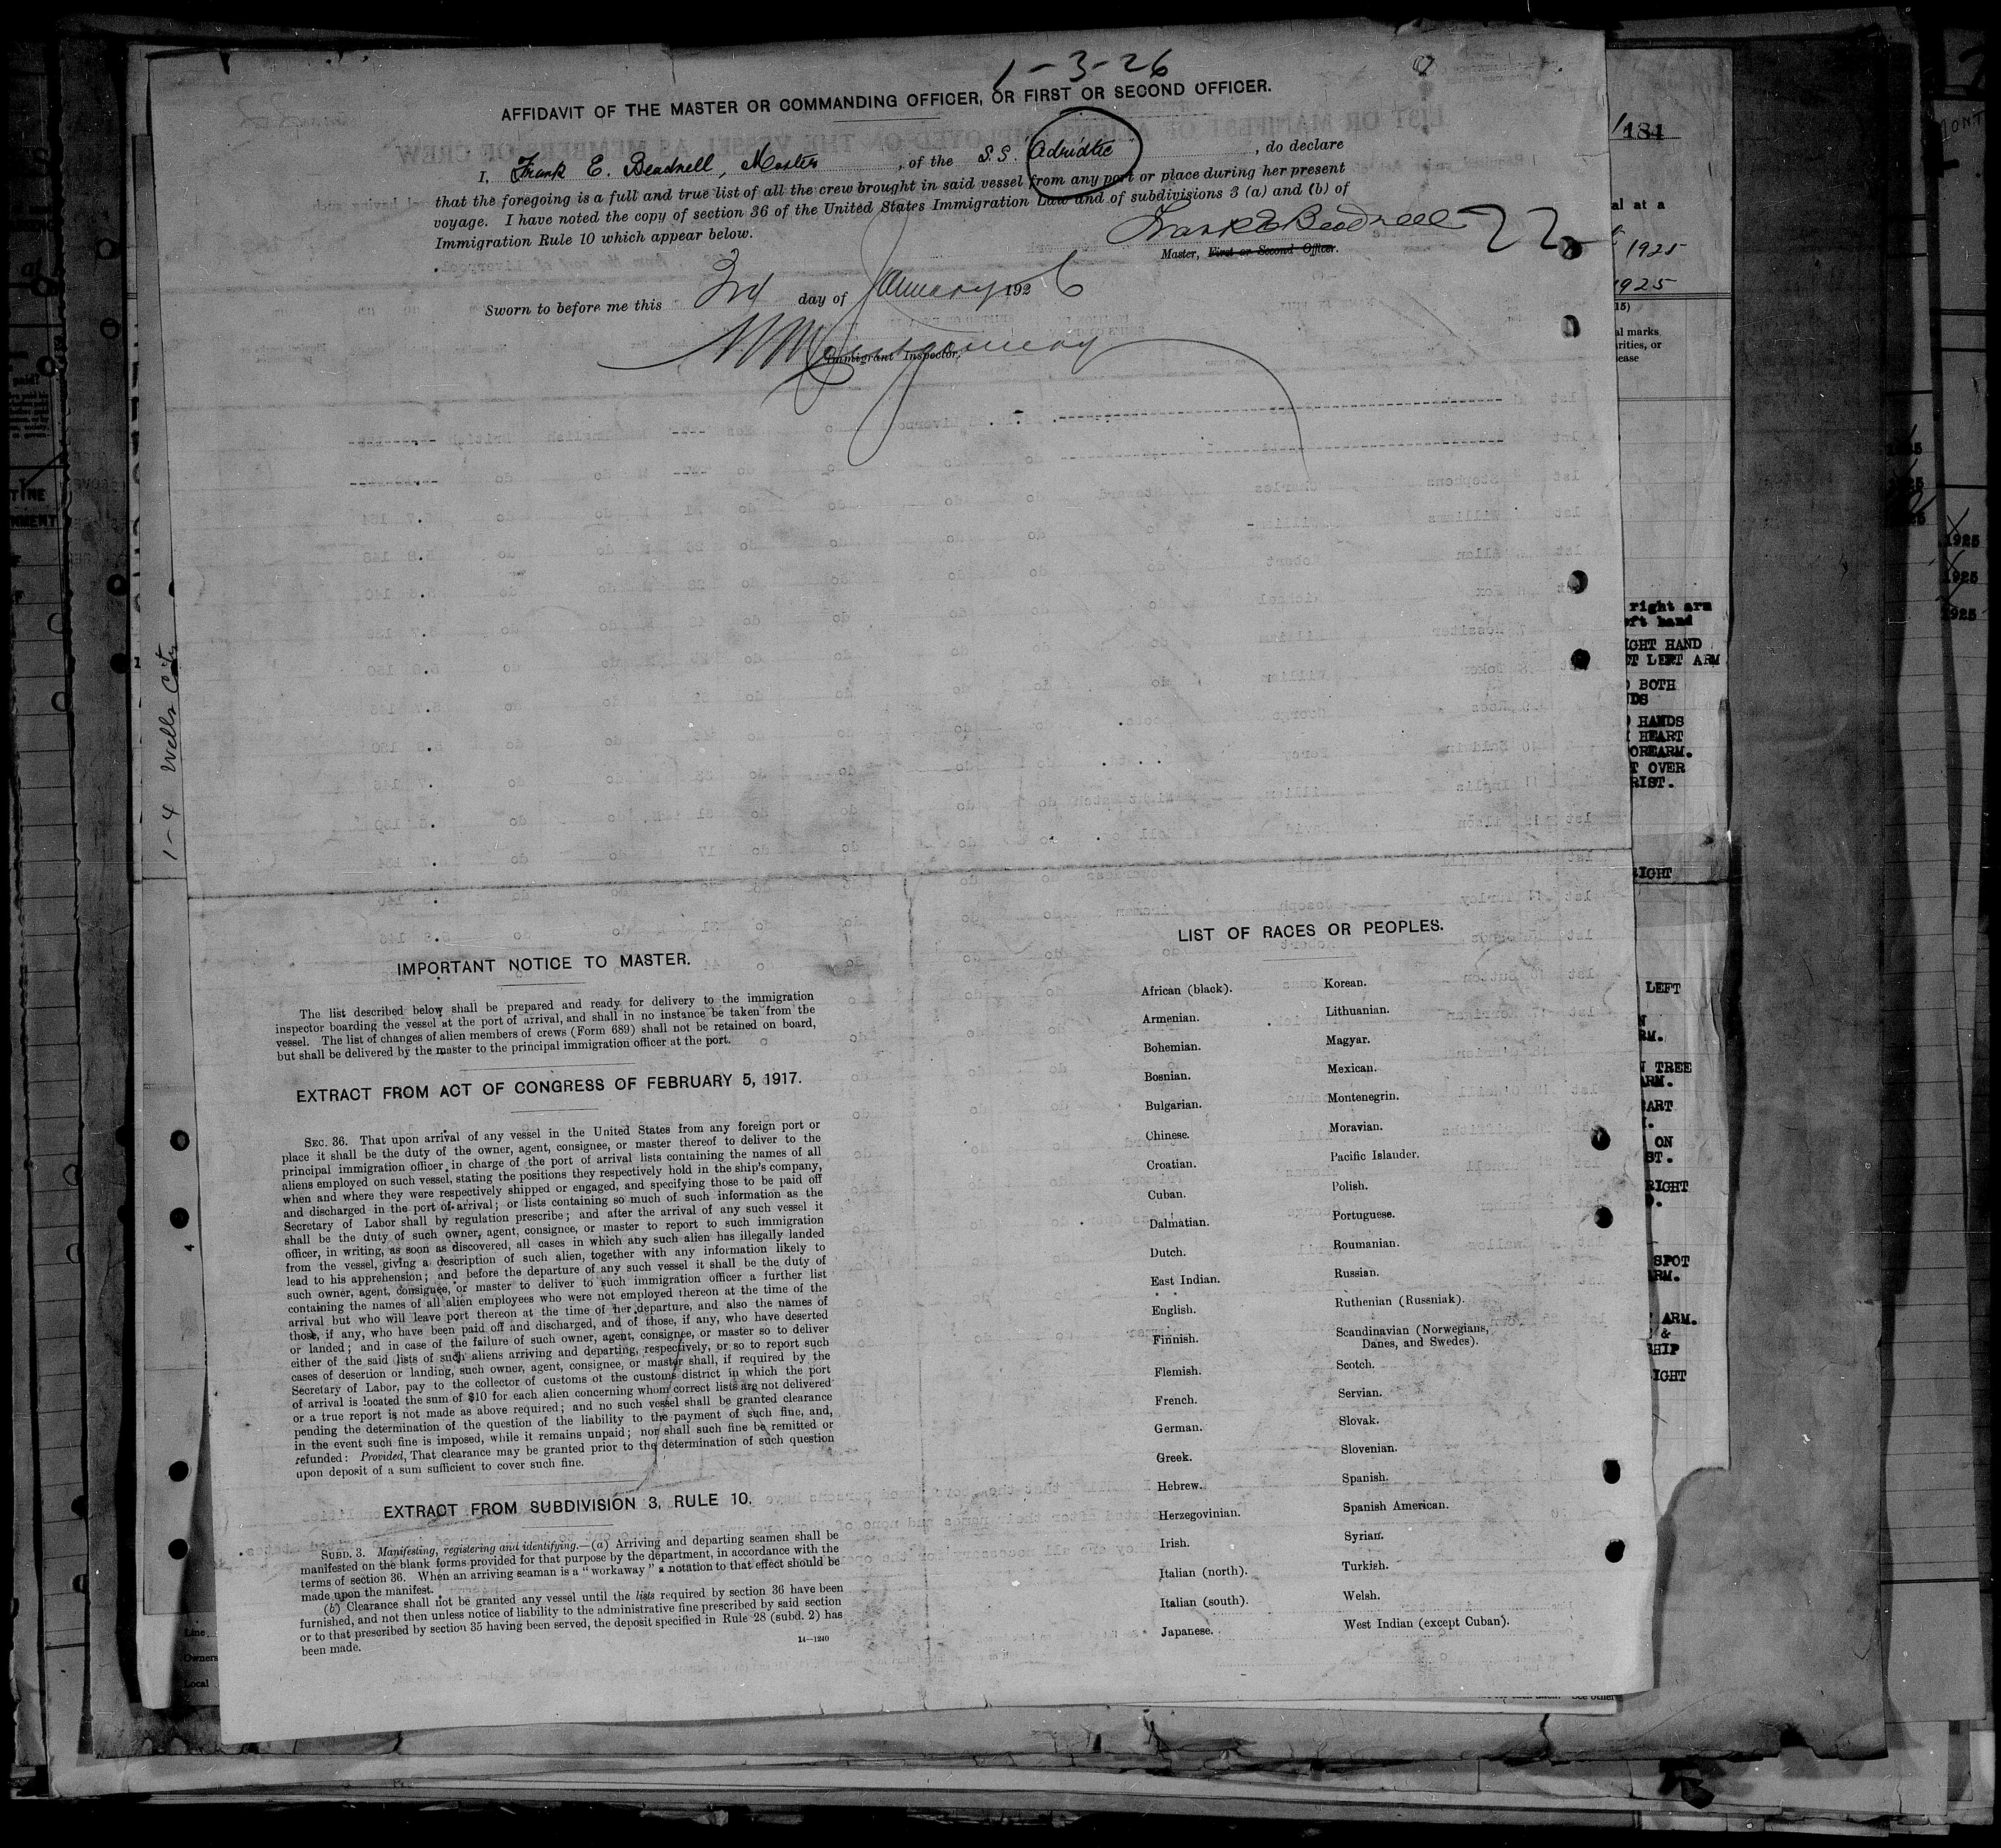 1-3-26
AFFIDAVIT OF THE MASTER OR COMMANDING OFFICER, OR FIRST OR SECOND OFFICER.
I, Frank E. Beadnell, Master, of the S.S. Adriatic, do declare
that the foregoing is a full and true list of all the crew brought in said vessel from any port or place during her present
voyage. I have noted the copy of section 36 of the United States Immigration Law and of subdivisions 3 (a) and (b) of
Immigration Rule 10 which appear below.
Frank E Beadnell 22
Master, First or Second Officer.
Sworn to before me this 3rd day of January 1926
Montgomery
Immigrant Inspector.
1-4 Wells City
IMPORTANT NOTICE TO MASTER.
The list described below shall be prepared and ready for delivery to the immigration
inspector boarding the vessel at the port of arrival, and shall in no instance be taken from the
vessel. The list of changes of alien members of crews (Form 689) shall not be retained on board,
but shall be delivered by the master to the principal immigration officer at the port.
EXTRACT FROM ACT OF CONGRESS OF FEBRUARY 5, 1917.
SEC. 36. That upon arrival of any vessel in the United States from any foreign port or
place it shall be the duty of the owner, agent, consignee, or master thereof to deliver to the
principal immigration officer in charge of the port of arrival lists containing the names of all
aliens employed on such vessel, stating the positions they respectively hold in the ship's company,
when and where they were respectively shipped or engaged, and specifying those to be paid off
and discharged in the port of arrival; or lists containing so much of such information as the
Secretary of Labor shall by regulation prescribe; and after the arrival of any such vessel it
shall be the duty of such owner, agent, consignee, or master to report to such immigration
officer, in writing, as soon as discovered, all cases in which any such alien has illegally landed
from the vessel, giving a description of such alien, together with any information likely to
lead to his apprehension; and before the departure of any such vessel it shall be the duty of
such owner, agent, consignee, or master to deliver to such immigration officer a further list
containing the names of all alien employees who were not employed thereon at the time of the
arrival but who will leave port thereon at the time of her departure, and also the names of
those, if any, who have been paid off and discharged, and of those, if any, who have deserted
or landed; and in case of the failure of such owner, agent, consignee, or master so to deliver
either of the said lists of such aliens arriving and departing, respectively, or so to report such
cases of desertion or landing, such owner, agent, consignee, or master shall, if required by the
Secretary of Labor, pay to the collector of customs of the customs district in which the port
of arrival is located the sum of $10 for each alien concerning whom correct lists are not delivered
or a true report is not made as above required; and no such vessel shall be granted clearance
pending the determination of the question of the liability to the payment of such fine, and,
in the event such fine is imposed, while it remains unpaid; nor shall such fine be remitted or
refunded: Provided, That clearance may be granted prior to the determination of such question
upon deposit of a sum sufficient to cover such fine.
EXTRACT FROM SUBDIVISION 3, RULE 10.
SUBD. 3. Manifesting, registering and identifying.—(a) Arriving and departing seamen shall be
manifested on the blank forms provided for that purpose by the department, in accordance with the
terms of section 36. When an arriving seaman is a "workaway" a notation to that effect should be
made upon the manifest.
(b) Clearance shall not be granted any vessel until the lists required by section 36 have been
furnished, and not then unless notice of liability to the administrative fine prescribed by said section
or to that prescribed by section 35 having been served, the deposit specified in Rule 28 (subd. 2) has
been made.
14—1240
LIST OF RACES OR PEOPLES.
African (black).
Armenian.
Bohemian.
Bosnian.
Bulgarian.
Chinese.
Croatian.
Cuban.
Dalmatian.
Dutch.
East Indian.
English.
Finnish.
Flemish.
French.
German.
Greek.
Hebrew.
Herzegovinian.
Irish.
Italian (north).
Italian (south).
Japanese.
Korean.
Lithuanian.
Magyar.
Mexican.
Montenegrin.
Moravian.
Pacific Islander.
Polish.
Portuguese.
Roumanian.
Russian.
Ruthenian (Russniak).
Scandinavian (Norwegians,
Danes, and Swedes).
Scotch.
Servian.
Slovak.
Slovenian.
Spanish.
Spanish American.
Syrian.
Turkish.
Welsh.
West Indian (except Cuban).
184
al at a
1925
1925
al marks,
right arm
hand
HAND
LEFT ARM
BOTH
HANDS
HEART
OVER
LEFT
TREE
ON
SPOT
ARM.
&
1925
1925
1925
Line
Owners
Local